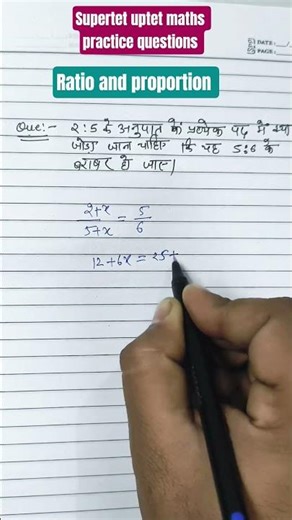 Supertet uptet maths
practice questions
DATE:
PAGE:
Ratio and proportion
Que:- 2:5 के अनुपात के प्रत्येक पद में क्या
जोड़ा जाना चाहिए कि वह 5:6 के
बराबर हो जाए।
2+x/5+x = 5/6
12+6x = 25+